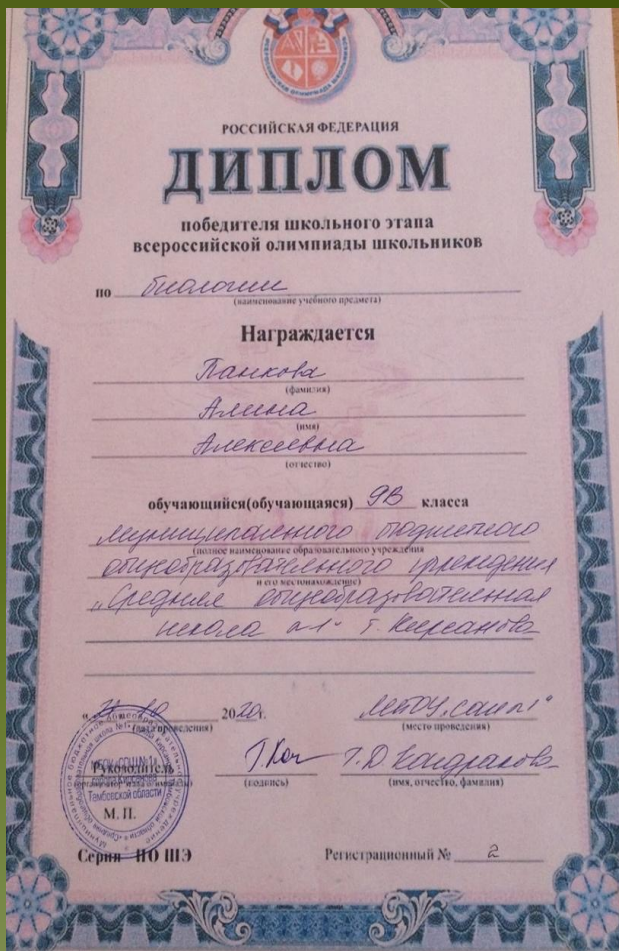 РОССИЙСКАЯ ФЕДЕРАЦИЯ
ДИПЛОМ
победителя школьного этапа
всероссийской олимпиады школьников
по биологии
(наименование учебного предмета)
Награждается
Панкова
(фамилия)
Алина
(имя)
Алексеевна
(отчество)
обучающийся(обучающаяся) 9В класса
муниципального бюджетного
(полное наименование образовательного учреждения
общеобразовательного учреждения
и его местонахождение)
"Средняя общеобразовательная
школа №1" г. Кирсанова
10 2020г. МБОУ "СОШ №1"
(дата проведения) (место проведения)
Руководитель Т.Д. Кондракова
(подпись) (имя, отчество, фамилия)
МБОУ «СОШ №1»
города Кирсанова
Тамбовской области
М.П.
Серия ПО ШЭ Регистрационный № 2